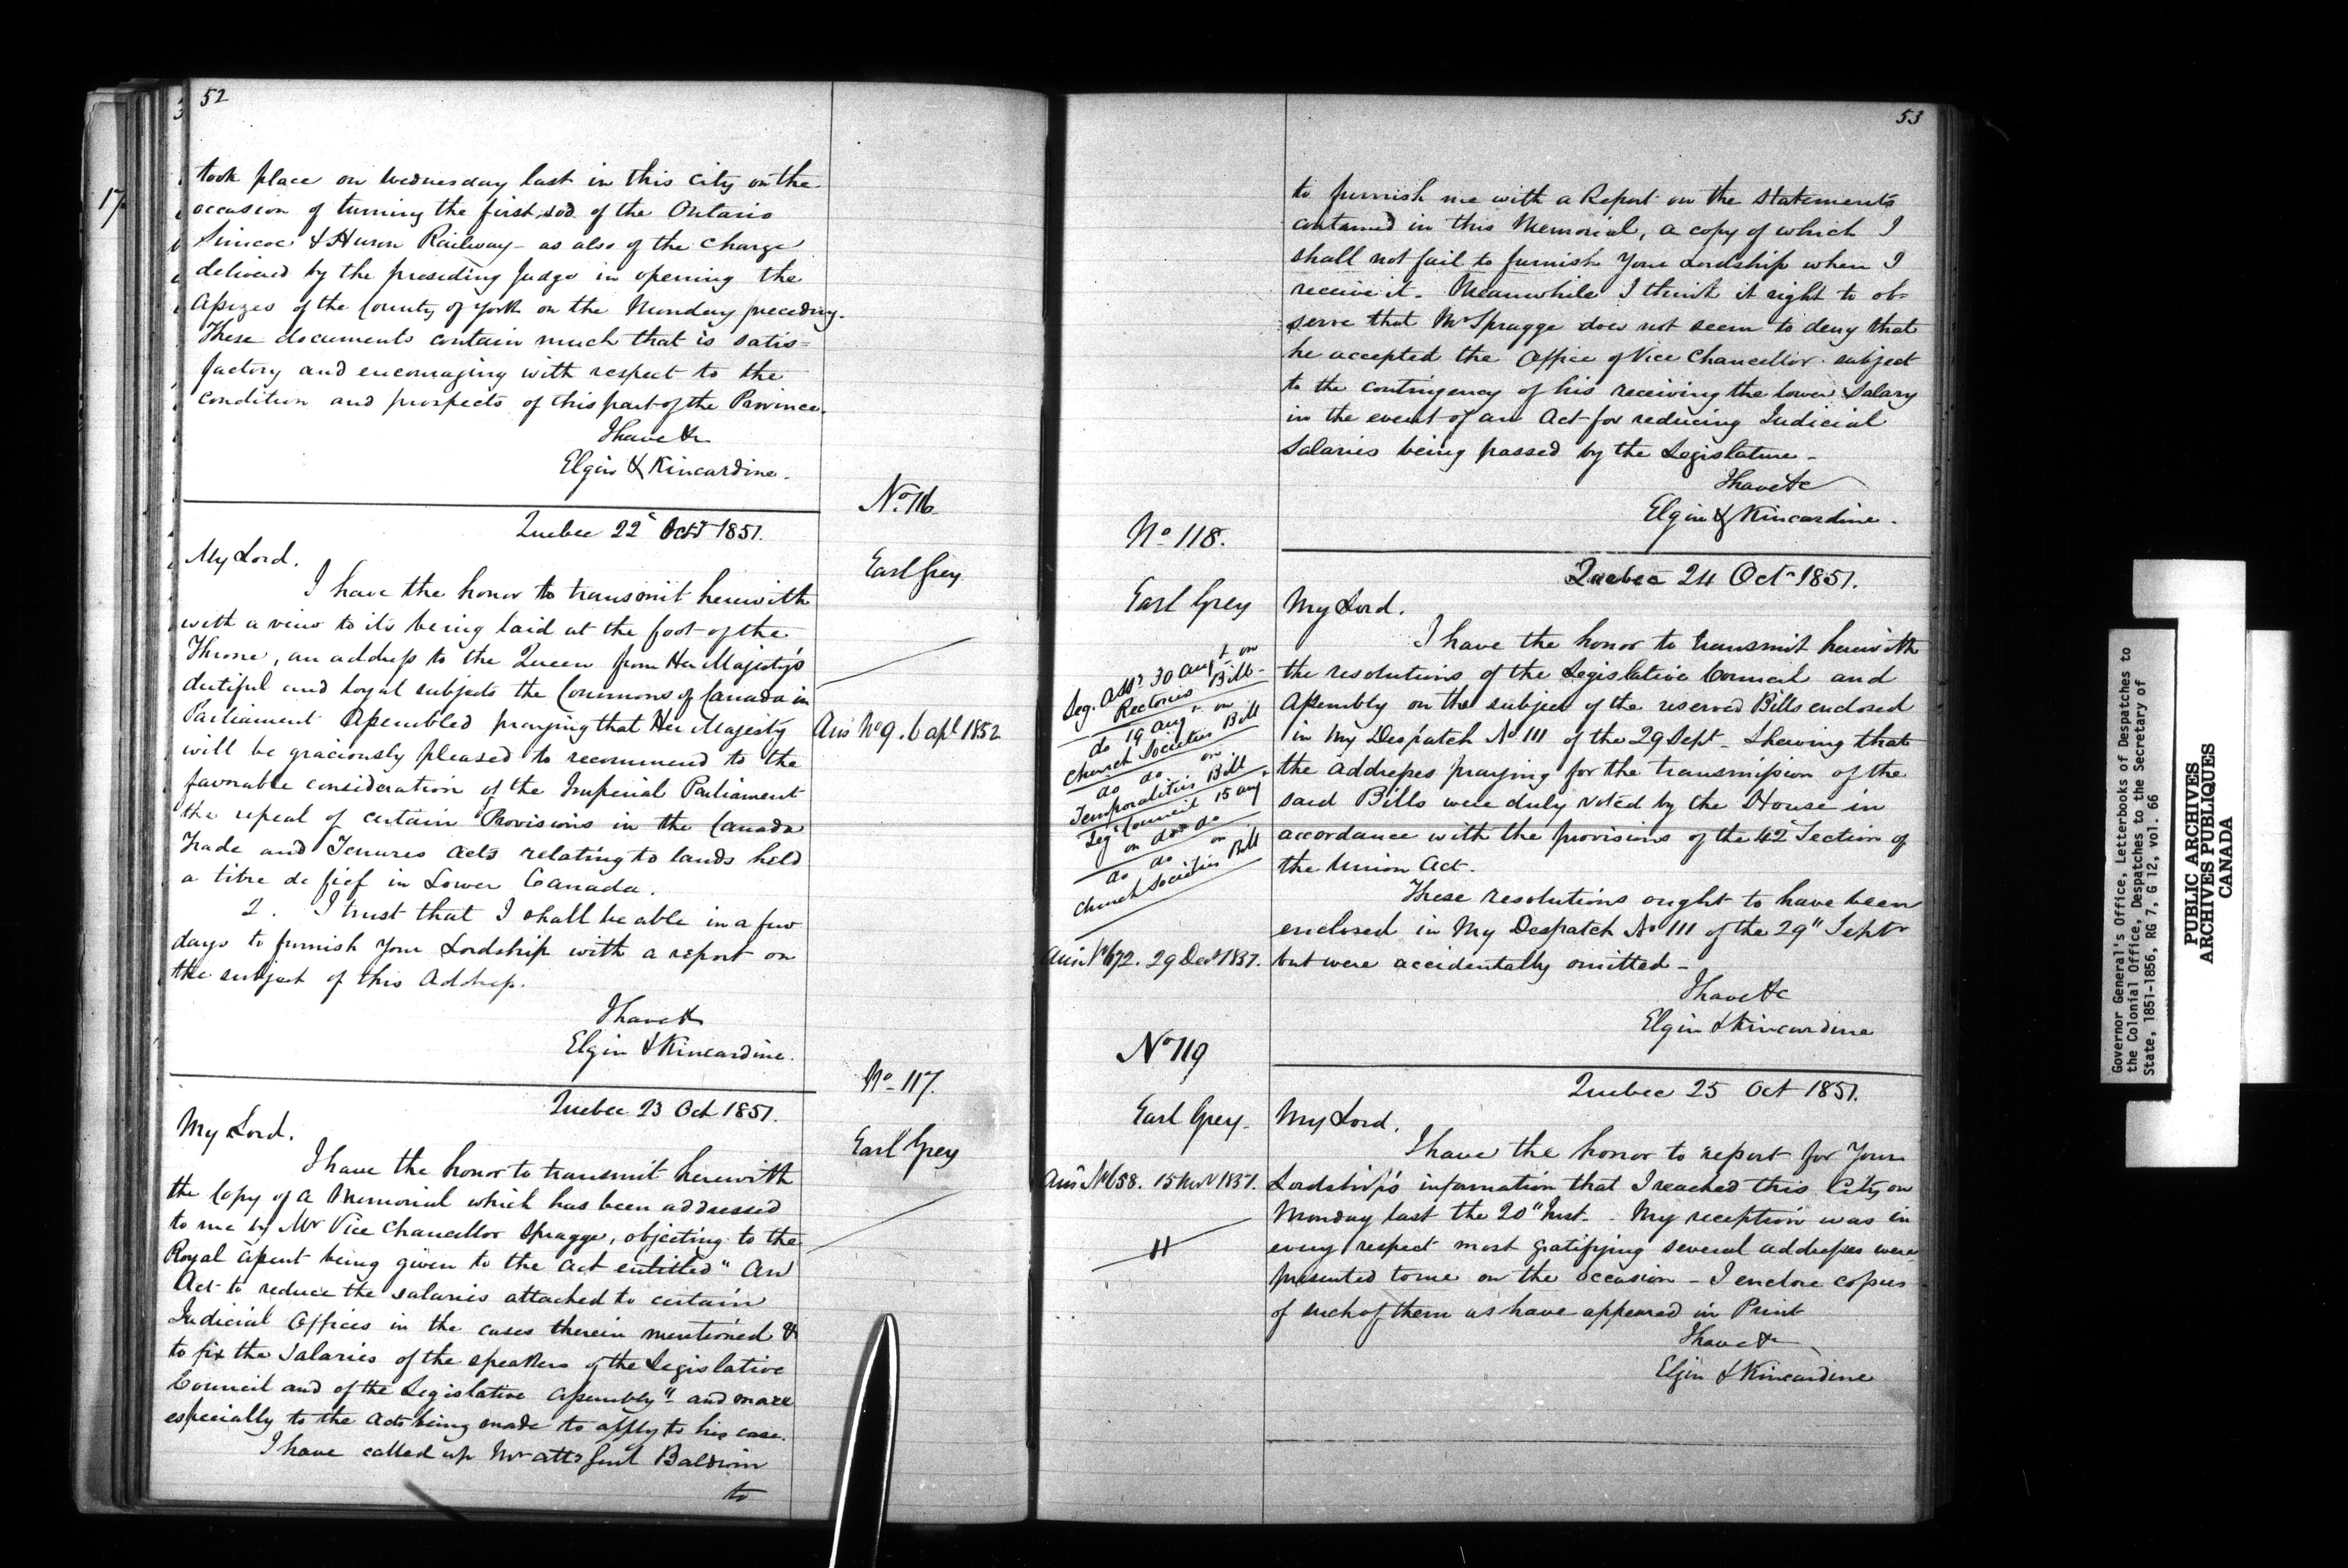 52
took place on Wednesday last in this City on the
occasion of turning the first sod of the Ontario
Simcoe & Huron Railway - as also of the Charge
delivered by the presiding Judge in opening the
Assizes of the County of York on the Monday preceding.
These documents contain much that is satis=
factory and encouraging with respect to the
condition and prospects of this part of the Province.
I have &c
Elgin & Kincardine.
No. 116
Quebec 22d Octr 1851.
Earl Grey
My Lord.
I have the honor to transmit herewith
with a view to its being laid at the foot of the
Throne, an address to the Queen from Her Majesty's
dutiful and loyal subjects the Commons of Canada in
Parliament Assembled praying that Her Majesty
Ansd No 9. 6 apl 1852
will be graciously pleased to recommend to the
favorable consideration of the Imperial Parliament
the repeal of certain Provisions in the Canada
Trade and Tenures Acts relating to lands held
a titre de fief in Lower Canada.
2. I trust that I shall be able in a few
days to furnish your Lordship with a report on
the subject of this Address.
I have &c
Elgin & Kincardine.
No. 117.
Quebec 23 Oct 1851.
Earl Grey
My Lord.
I have the honor to transmit herewith
the Copy of a Memorial which has been addressed
to me by Mr Vice Chancellor Spragge, objecting to the
Royal Assent being given to the Act entitled "An
Act to reduce the salaries attached to certain
Judicial Offices in the cases therein mentioned &
to fix the Salaries of the Speakers of the Legislative
Council and of the Legislative Assembly" and more
especially to the Acts being made to apply to his case.
I have called up Mr Atty Genl Baldwin
to
53
to furnish me with a Report on the Statements
contained in this Memorial, a copy of which I
shall not fail to furnish Your Lordship when I
receive it. Meanwhile I think it right to ob-
serve that Mr Spragge does not seem to deny that
he accepted the Office of Vice Chancellor subject
to the contingency of his receiving the lower Salary
in the event of an Act for reducing Judicial
Salaries being passed by the Legislature.
I have &c
Elgin & Kincardine.
No 118.
Quebec 24 Oct 1851.
Earl Grey
My Lord.
I have the honor to transmit herewith
the resolutions of the Legislative Council and
Assembly on the subject of the reserved Bills enclosed
in My Despatch No 111 of the 29 Sept. Shewing that
the Addresses praying for the transmission of the
said Bills were duly voted by the House in
accordance with the provisions of the 42d Section of
the Union Act.
These resolutions ought to have been
enclosed in My Despatch No 111 of the 29" Septr
but were accidentally omitted -
Leg. Assy 30 Augt on
Rectories Bill.
do 19 Augt on
Church Societies Bill
do do on
Temporalities Bill
Leg Council 15 aug
on do do
do do on
Church Societies Bill
Ansd No 672. 29 Decr 1851.
I have &c
Elgin & Kincardine
No 119
Quebec 25 Oct 1851.
Earl Grey.
My Lord.
I have the honor to report for Your
Lordship's information that I reached this City on
Monday last the 20" Inst. My reception was in
every respect most gratifying several addresses were
presented to me on the occasion - I enclose copies
of such of them as have appeared in Print
Ansd No 658. 15 Novr 1851.
I have &c
Elgin & Kincardine
17
Governor General's Office, Letterbooks of Despatches to
the Colonial Office, Despatches to the Secretary of
State, 1851-1856, RG 7, G 12, vol. 66
PUBLIC ARCHIVES
ARCHIVES PUBLIQUES
CANADA